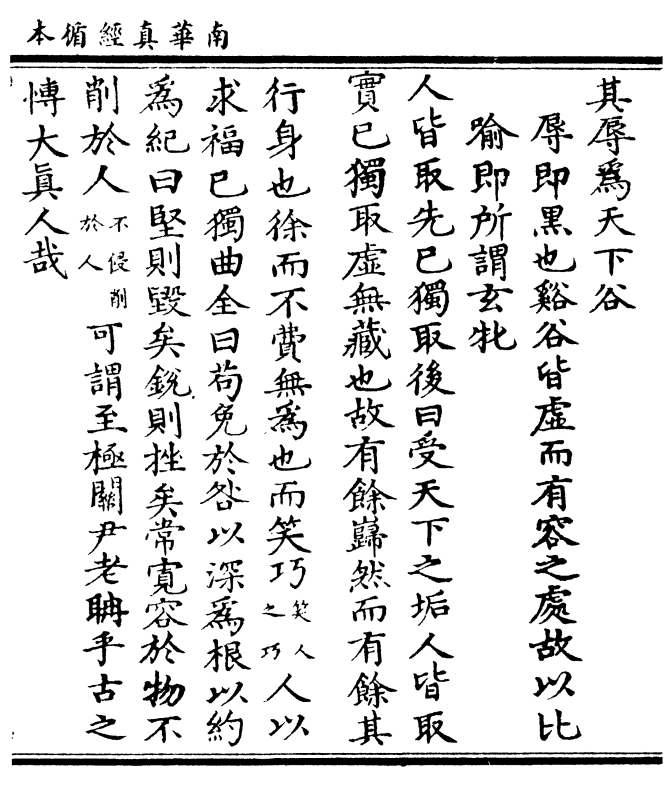 南華真經循本
其辱為天下谷
辱即黑也谿谷皆虛而有容之處故以比
喻即所謂玄牝
人皆取先已獨取後曰受天下之垢人皆取
實已獨取虛無藏也故有餘巋然而有餘其
行身也徐而不費無為也而笑巧笑人之巧人以
求福已獨曲全曰苟免於咎以深為根以約
為紀曰堅則毀矣銳則挫矣常寬容於物不
削於人不侵削於人可謂至極關尹老聃乎古之
博大眞人哉